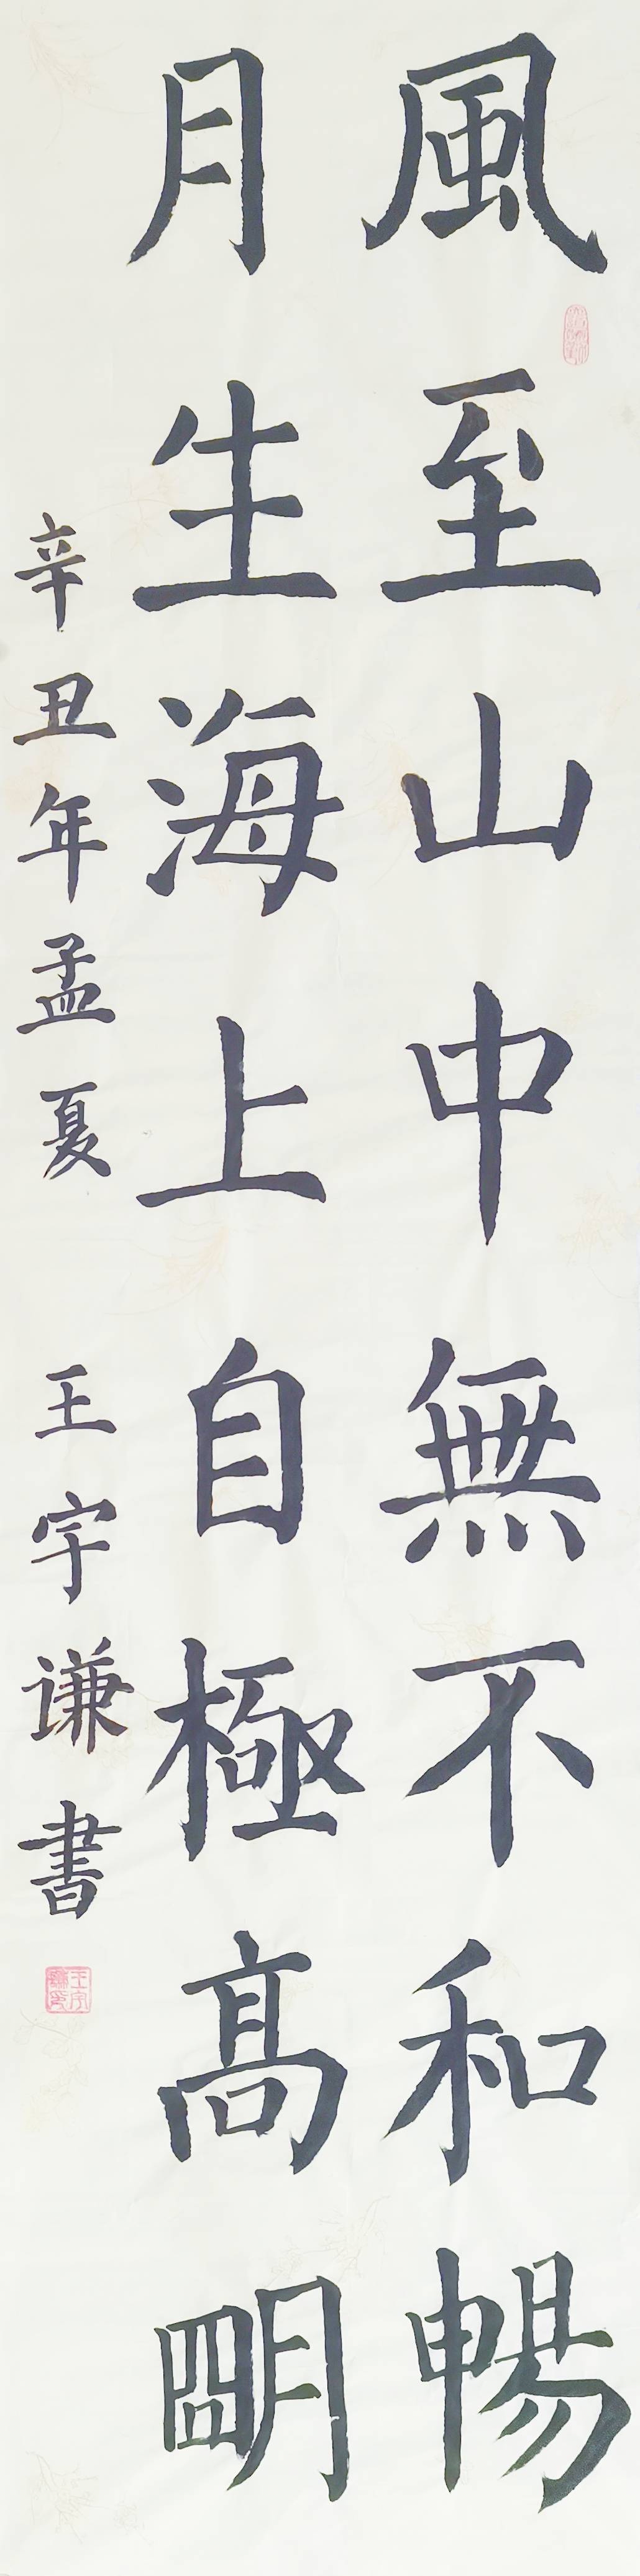 風至山中無不和暢
月生海上自極高朙
辛丑年孟夏 王宇谦書
王宇謙印